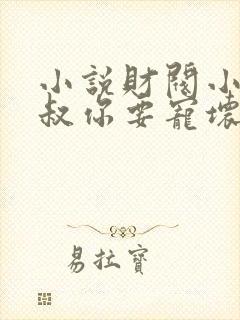 小說財閥小
叔你要寵壞
易拉寶